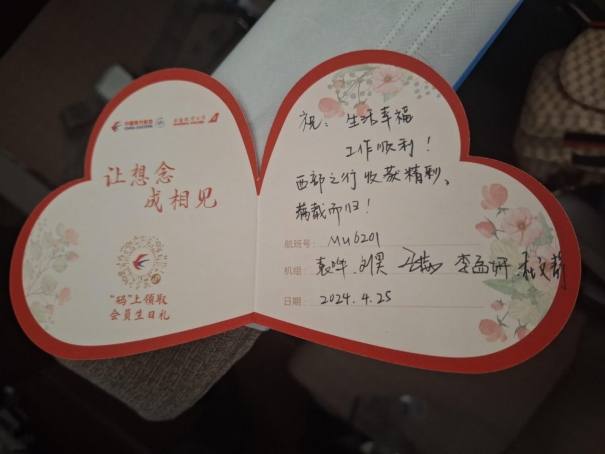 中國東方航空
CHINA EASTERN
上海航空公司
SHANGHAI AIRLINES
让想念
成相见
"码"上领取
会員生日礼
祝：生活幸福
工作顺利！
西部之行收获精彩、
满载而归！
航班号：MU6201
机组：袁晔 刘昊 李孟妍
日期：2024.4.25